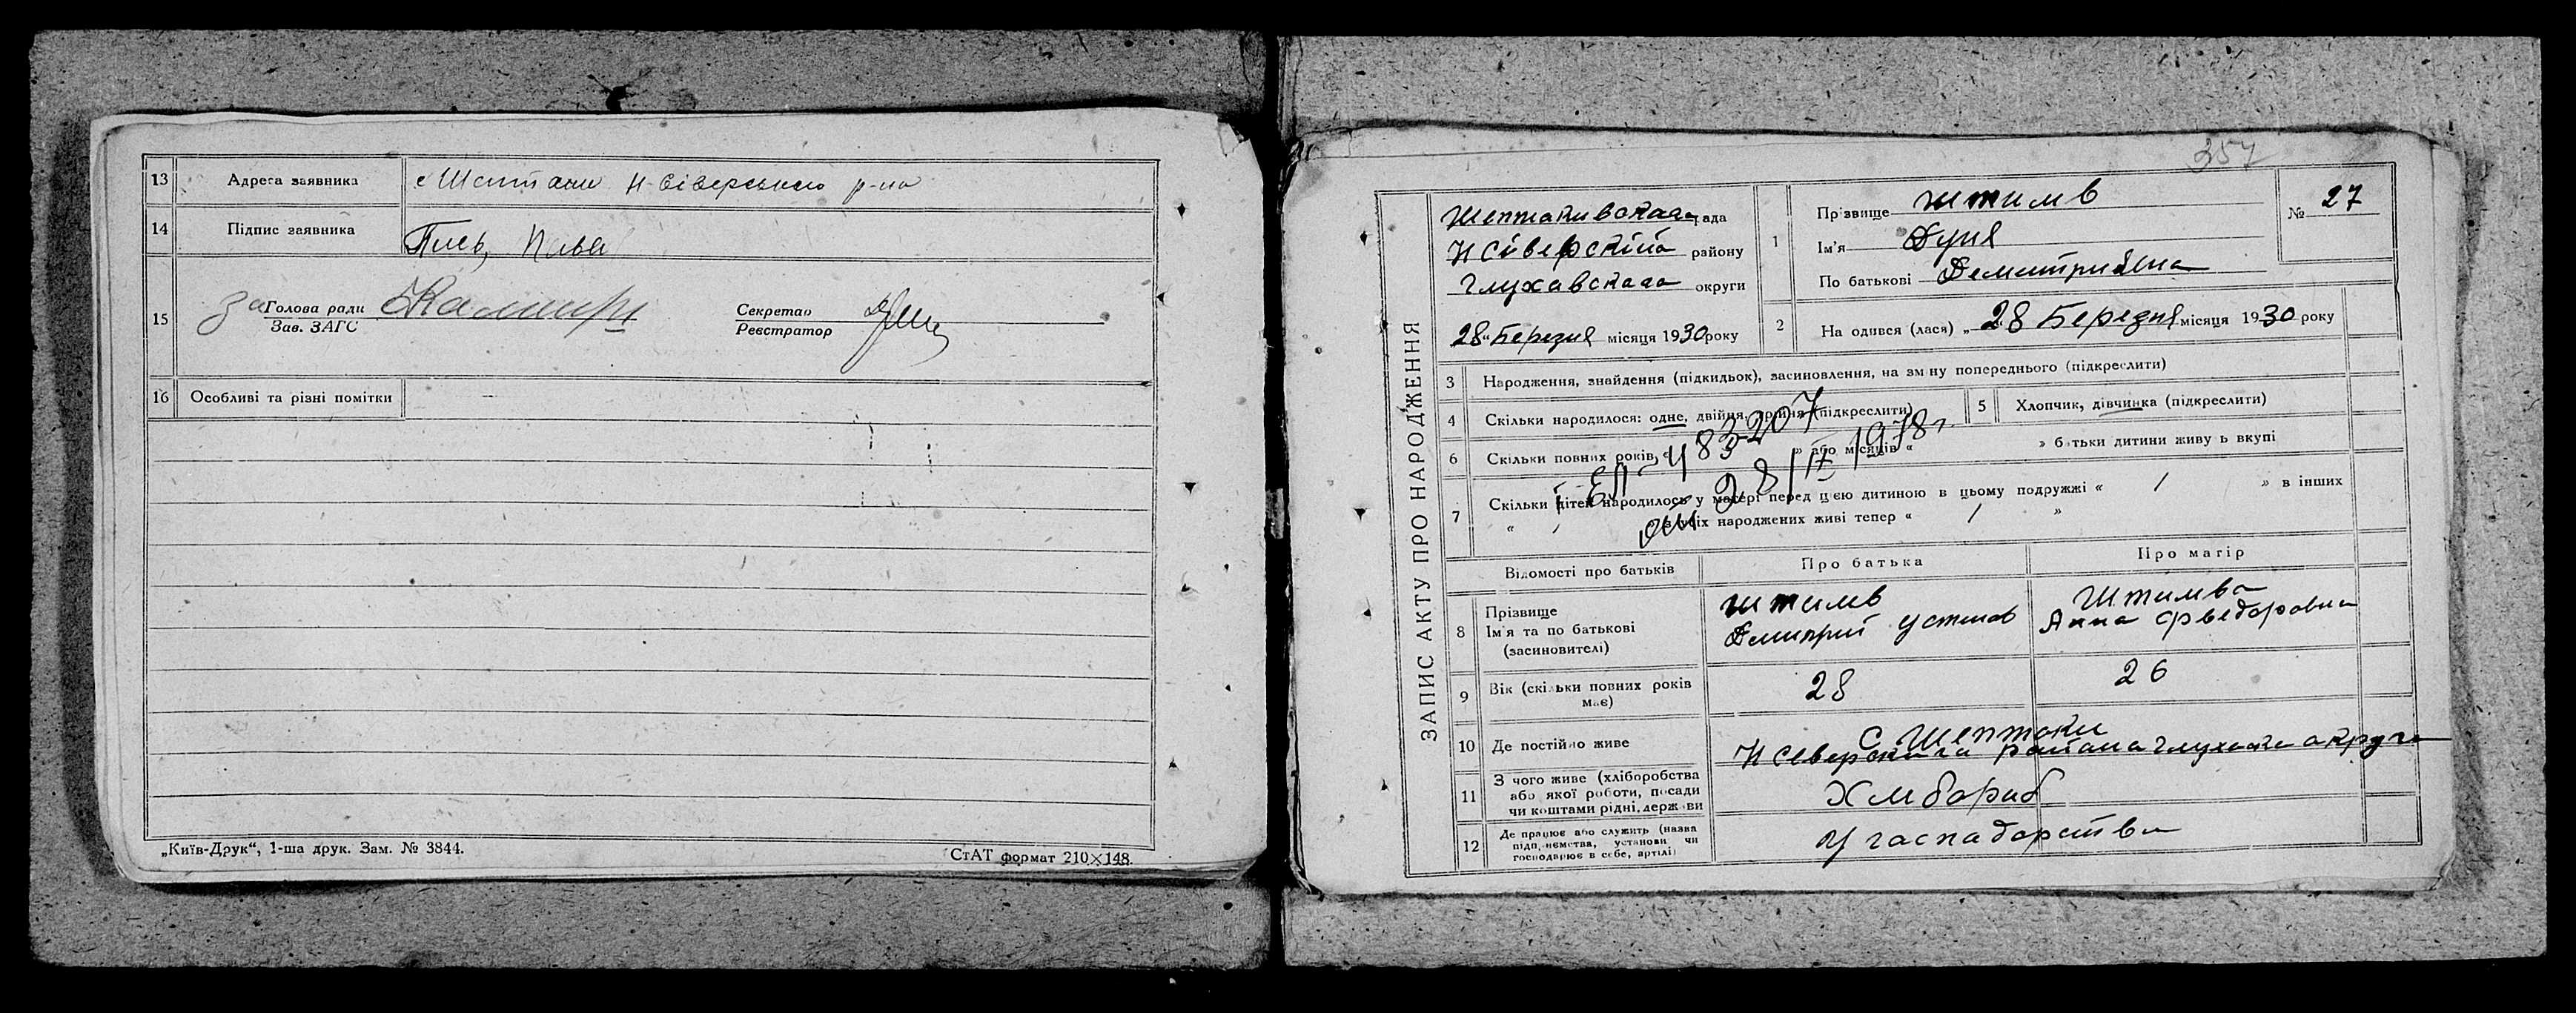 13 Адреса заявника с Шептаки Н-Сіверського р-на
14 Підпис заявника
15 за Голова ради
Зав. ЗАГС
Секретар
Реєстратор
16 Особливі та різні помітки –
„Київ-Друк“, 1-ша друк. Зам. № 3844.
СтАТ формат 210×148.
357
ЗАПИС АКТУ ПРО НАРОДЖЕННЯ
Шептакивская рада
Н Сіверский району
Глухавскаго округи
28 „ Березня місяця 1930 року
1 Прізвище Штимв
Ім'я Дуня
По батькові
№ 27
2 На одився (лася) „ 28 Березня місяця 1930 року
3 Народження, знайдення (підкидьок), засиновлення, на зміну попереднього (підкреслити)
4 Скільки народилося: одне, двійня, трійня (підкреслити)
5 Хлопчик, дівчинка (підкреслити)
6 Скільки повних років „ » або місяців “ » батьки дитини живу ь вкупі
483207
28/IV 1978г.
7 Скільки дітей народилось у матері перед цією дитиною в цьому подружжі « 1 » в інших
« з усіх народжених живі тепер « 1 »
Відомості про батьків Про батька Про матір
8 Прізвище
Ім'я та по батькові
(засиновителі)
Штимв
Дмитрий Устинов
Штимва
Анна Фведоровна
9 Вік (скільки повних років має) 28 26
10 Де постійно живе С Шептаки
Н Северскага района округи
11 З чого живе (хліборобства
або якої роботи, посади
чи коштами рідні, держави
Хлибориб
12 Де працює або служить (назва
підприємства, установи чи
господарює в себе, артілі)
У гаспадарства